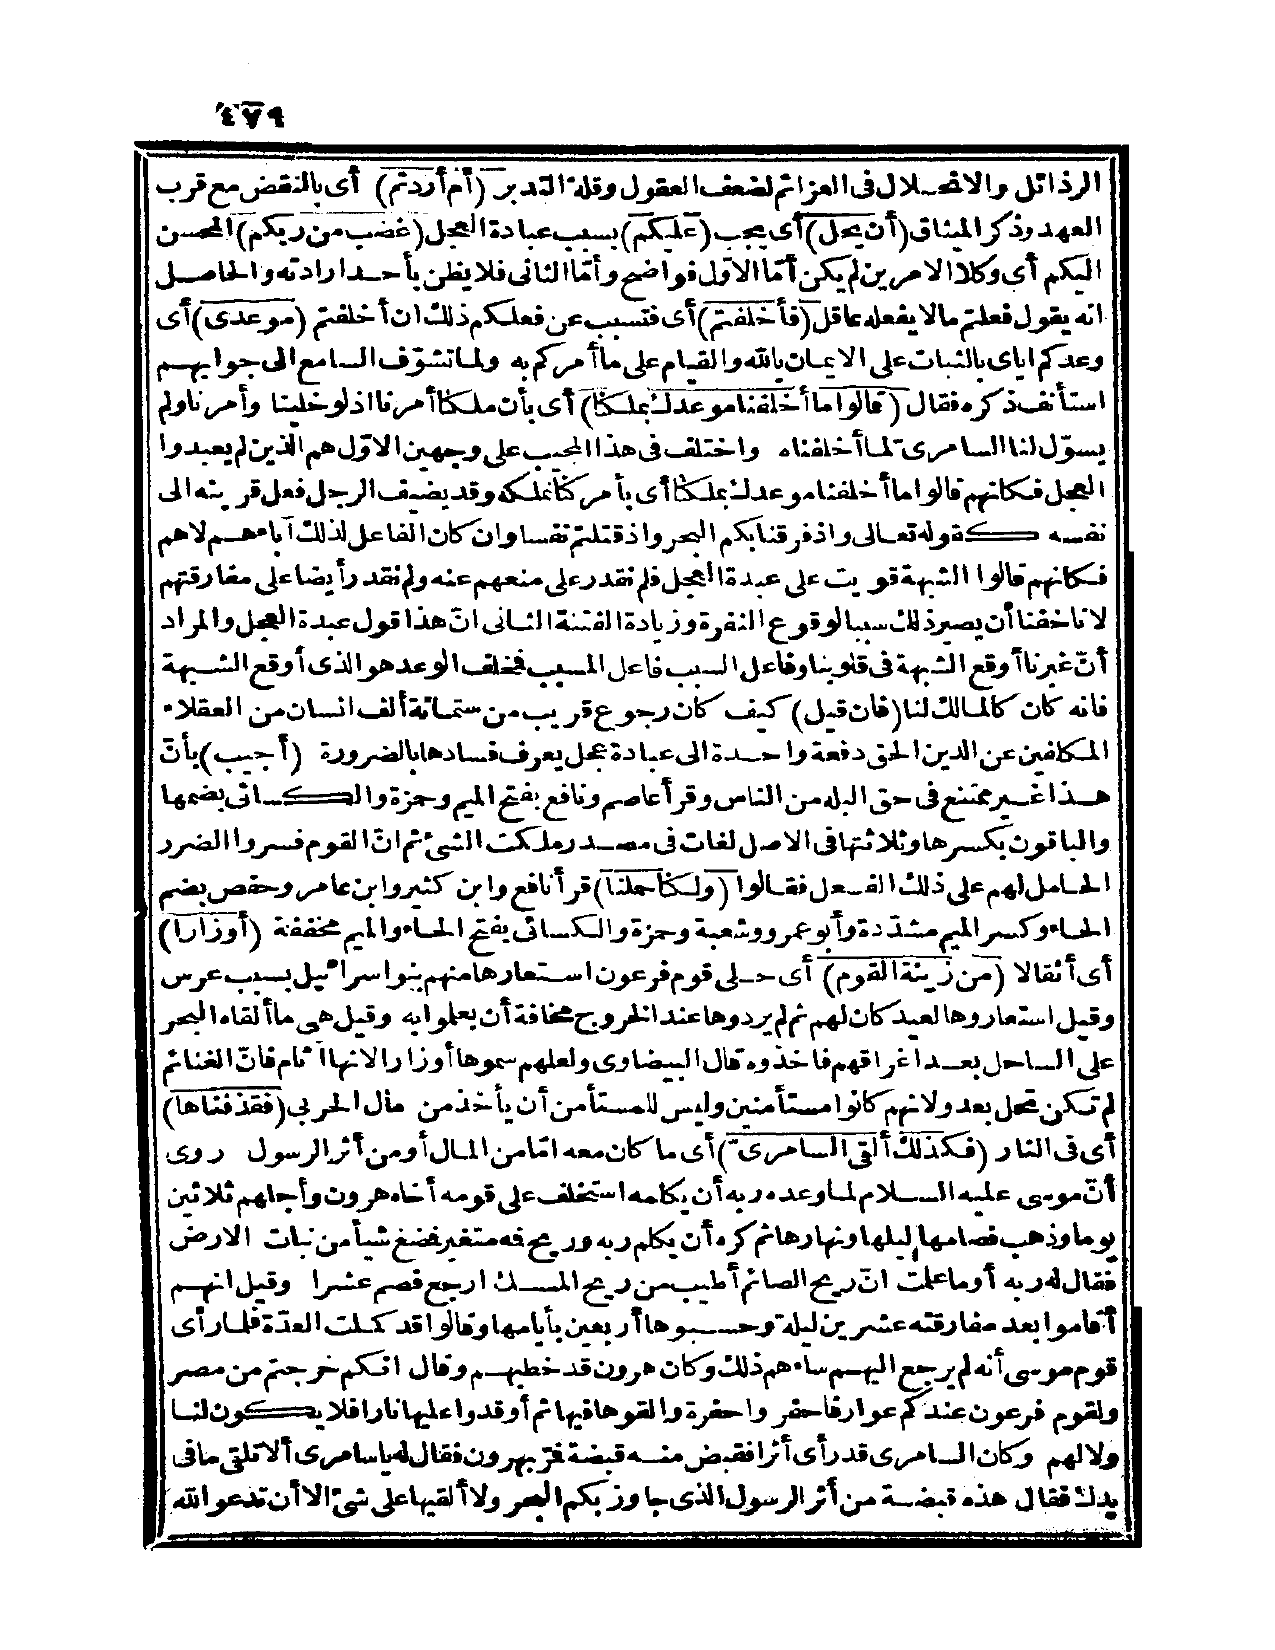 ٤٧٩
الرذائل والانحلال فى العزائم لضعف العقول وقلة التدبر (أم أردتم) أى بالنقض مع قرب
العهد وذكر الميثاق (أن يحل) أى يجب (عليكم) بسبب عبادة العجل (غضب من ربكم) المحسن
اليكم أى وكلا الامرين لم يكن أمّا الاوّل فواضح وأمّا الثانى فلا يظن بأحد ارادته والحاصل
انه يقول فعلتم مالا يفعله عاقل (فأخلفتم) أى فتسبب عن فعلكم ذلك ان أخلفتم (موعدى) أى
وعدكم اياى بالثبات على الايمان بالله والقيام على ما أمركم به ولما تشوّف السامع الى جوابهم
استأنف ذكره فقال (قالوا ما أخلفنا موعدك بملكنا) أى بأن ملكنا أمرنا اذ لو خلينا وأمرنا ولم
يسوّل لنا السامرىّ لما أخلفناه واختلف فى هذا المجيب على وجهين الاوّل هم الذين لم يعبدوا
العجل فكانهم قالوا ما أخلفنا موعدك بملكنا أى بأمر كنا نملكه وقد يضيف الرجل فعل قرينه الى
نفسه كقوله تعالى واذ فرقنا بكم البحر واذ قتلتم نفسا وان كان الفاعل لذلك آباءهم لا هم
فكانهم قالوا الشبهة قويت على عبدة العجل فلم نقدر على منعهم عنه ولم نقدر أيضا على مفارقتهم
لانا خفنا أن يصير ذلك سببا لوقوع النفرة وزيادة الفتنة الثانى انّ هذا قول عبدة العجل والمراد
أنّ غيرنا أوقع الشبهة فى قلوبنا وفاعل السبب فاعل المسبب فخلف الوعد هو الذى أوقع الشبهة
فانه كان كالمالك لنا (فان قيل) كيف كان رجوع قريب من ستمائة ألف انسان من العقلاء
المكلفين عن الدين الحق دفعة واحدة الى عبادة عجل يعرف فسادها بالضرورة (أجيب) بأنّ
هذا غير ممتنع فى حق البله من الناس وقرأ عاصم ونافع بفتح الميم وحمزة والكسائى بضمها
والباقون بكسرها وثلاثتها فى الاصل لغات فى مصدر ملكت الشئ ثم انّ القوم فسروا الضرر
الحامل لهم على ذلك الفعل فقالوا (ولكنا حملنا) قرأ نافع وابن كثير وابن عامر وحفص بضم
الحاء وكسر الميم مشدّدة وأبو عمرو وشعبة وحمزة والكسائى بفتح الحاء والميم مخففة (أوزارا)
أى أثقالا (من زينة القوم) أى حلى قوم فرعون استعارها منهم بنوا سرائيل بسبب عرس
وقيل استعاروها لعيد كان لهم ثم لم يردوها عند الخروج مخافة أن يعلموا به وقيل هى ما ألقاه البحر
على الساحل بعد اغراقهم فاخذوه قال البيضاوى ولعلهم سموها أوزارا لانها آثام فانّ الغنائم
لم تكن تحل بعد ولانهم كانوا مستأمنين وليس للمستأمن أن يأخذ من مال الحربى (فقذفناها)
أى فى النار (فكذلك ألقى السامرىّ) أى ما كان معه امّا من المال أو من أثر الرسول روى
أنّ موسى عليه السلام لما وعده ربه أن يكلمه استخلف على قومه أخاه هرون وأجلهم ثلاثين
يوما وذهب فصامها ليلها ونهارها ثم كره أن يكلم ربه وريح فه متغير فضغ شيأ من نبات الارض
فقال له ربه أوما علمت انّ ريح الصائم أطيب من ريح المسك ارجع فصم عشرا وقيل انهم
أقاموا بعد مفارقته عشرين ليلة وحسبوها أربعين بأيامها وقالوا قد كملت العدّة فلما رأى
قوم موسى أنه لم يرجع اليهم ساءهم ذلك وكان هرون قد خطبهم وقال انكم خرجتم من مصر
ولقوم فرعون عندكم عوار فاحفروا حفرة والقوها فيها ثم أوقدوا عليها نارا فلا يكون لنا
ولا لهم وكان السامرى قد رأى أثرا فقبض منه قبضة فمرّ بهرون فقال له يا سامرى ألا تلقى ما فى
يدك فقال هذه قبضة من أثر الرسول الذى جاوز بكم البحر ولا ألقيها على شئ الا أن تدعو الله